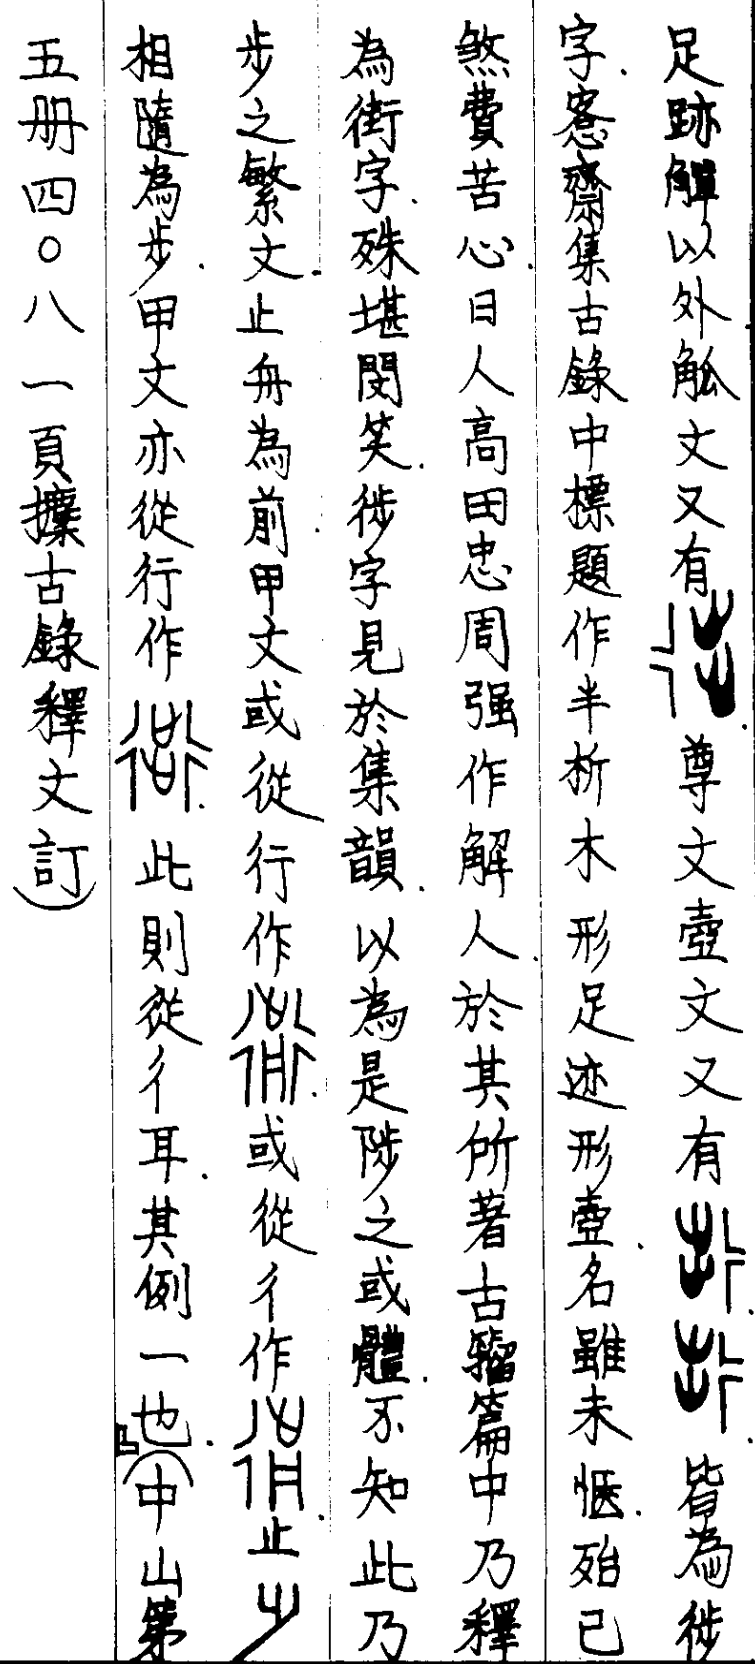 足跡觶以外觚文又有尊文壺文又有皆為徙
字.愙齋集古錄中標題作半析木形足迹形壺.名雖未愜.殆已
煞費苦心.日人高田忠周强作解人.於其所著古籀篇中乃釋
為街字.殊堪閔笑.徙字見於集韻.以為是陟之或體.不知此乃
步之繁文.止舟為前.甲文或從行作.或從彳作.止
相隨為步.甲文亦從行作.此則從彳耳.其例一也.(中山第
五册四〇八一頁攈古錄釋文訂)